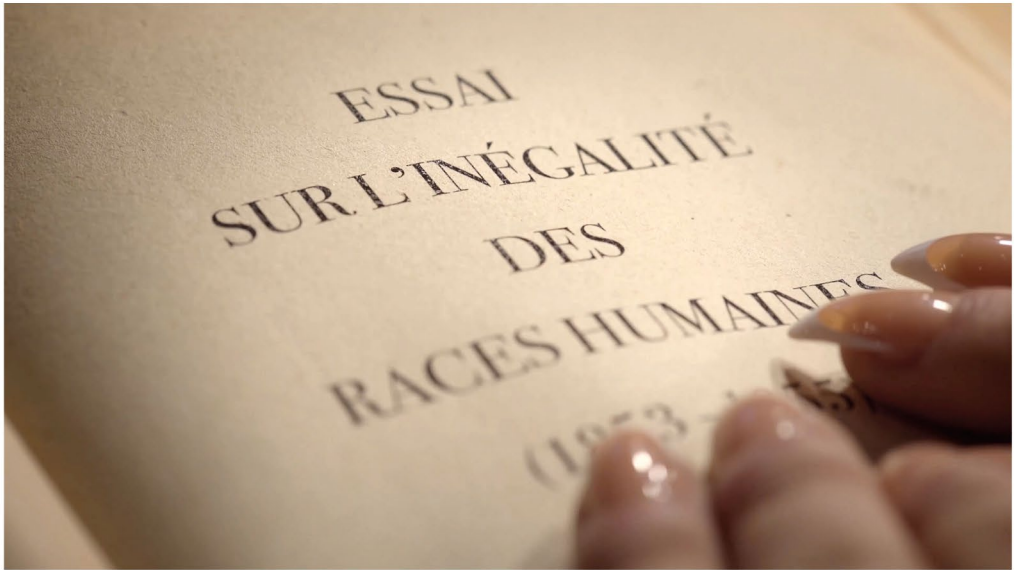 ESSAI
SUR L’INÉGALITÉ
DES
RACES HUMAINES